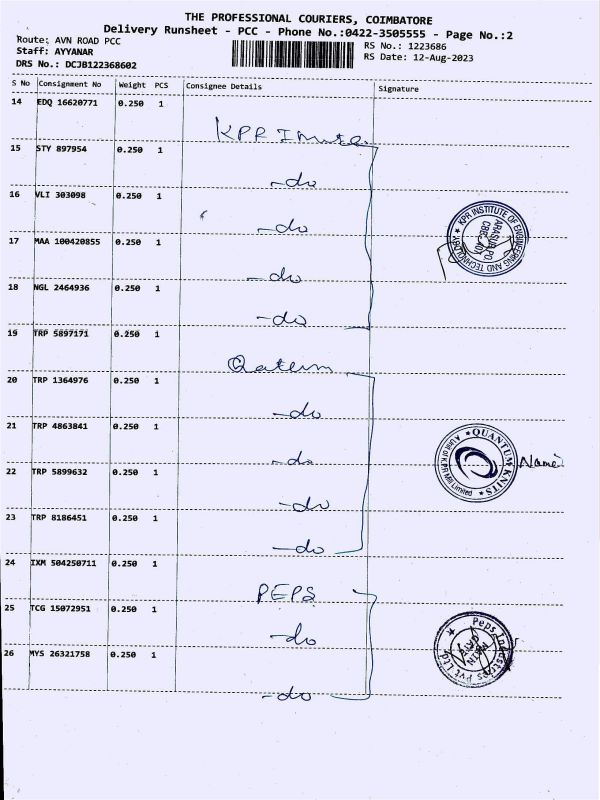 THE PROFESSIONAL COURIERS, COIMBATORE
Delivery Runsheet - PCC - Phone No.:0422-3505555 - Page No.:2
Route: AVN ROAD PCC
Staff: AYYANAR
DRS No.: DCJB122368602
RS No.: 1223686
RS Date: 12-Aug-2023
S No Consignment No Weight PCS Consignee Details Signature
14 EDQ 16620771 0.250 1
KPR
15 STY 897954 0.250 1
-do
16 VLI 303098 0.250 1
-do
17 MAA 100420855 0.250 1
-do
18 NGL 2464936 0.250 1
-do
KPR INSTITUTE OF ENGINEERING AND TECHNOLOGY
ARASUR PO
19 TRP 5897171 0.250 1
20 TRP 1364976 0.250 1
-do
21 TRP 4863841 0.250 1
-do
22 TRP 5899632 0.250 1
-do
23 TRP 8186451 0.250 1
-do
QUANTUM KNITS
A Unit of KPR Mill Limited
24 IXM 504250711 0.250 1
PEPS
25 TCG 15072951 0.250 1
-do
26 MYS 26321758 0.250 1
-do
Peps Industries Pvt Ltd